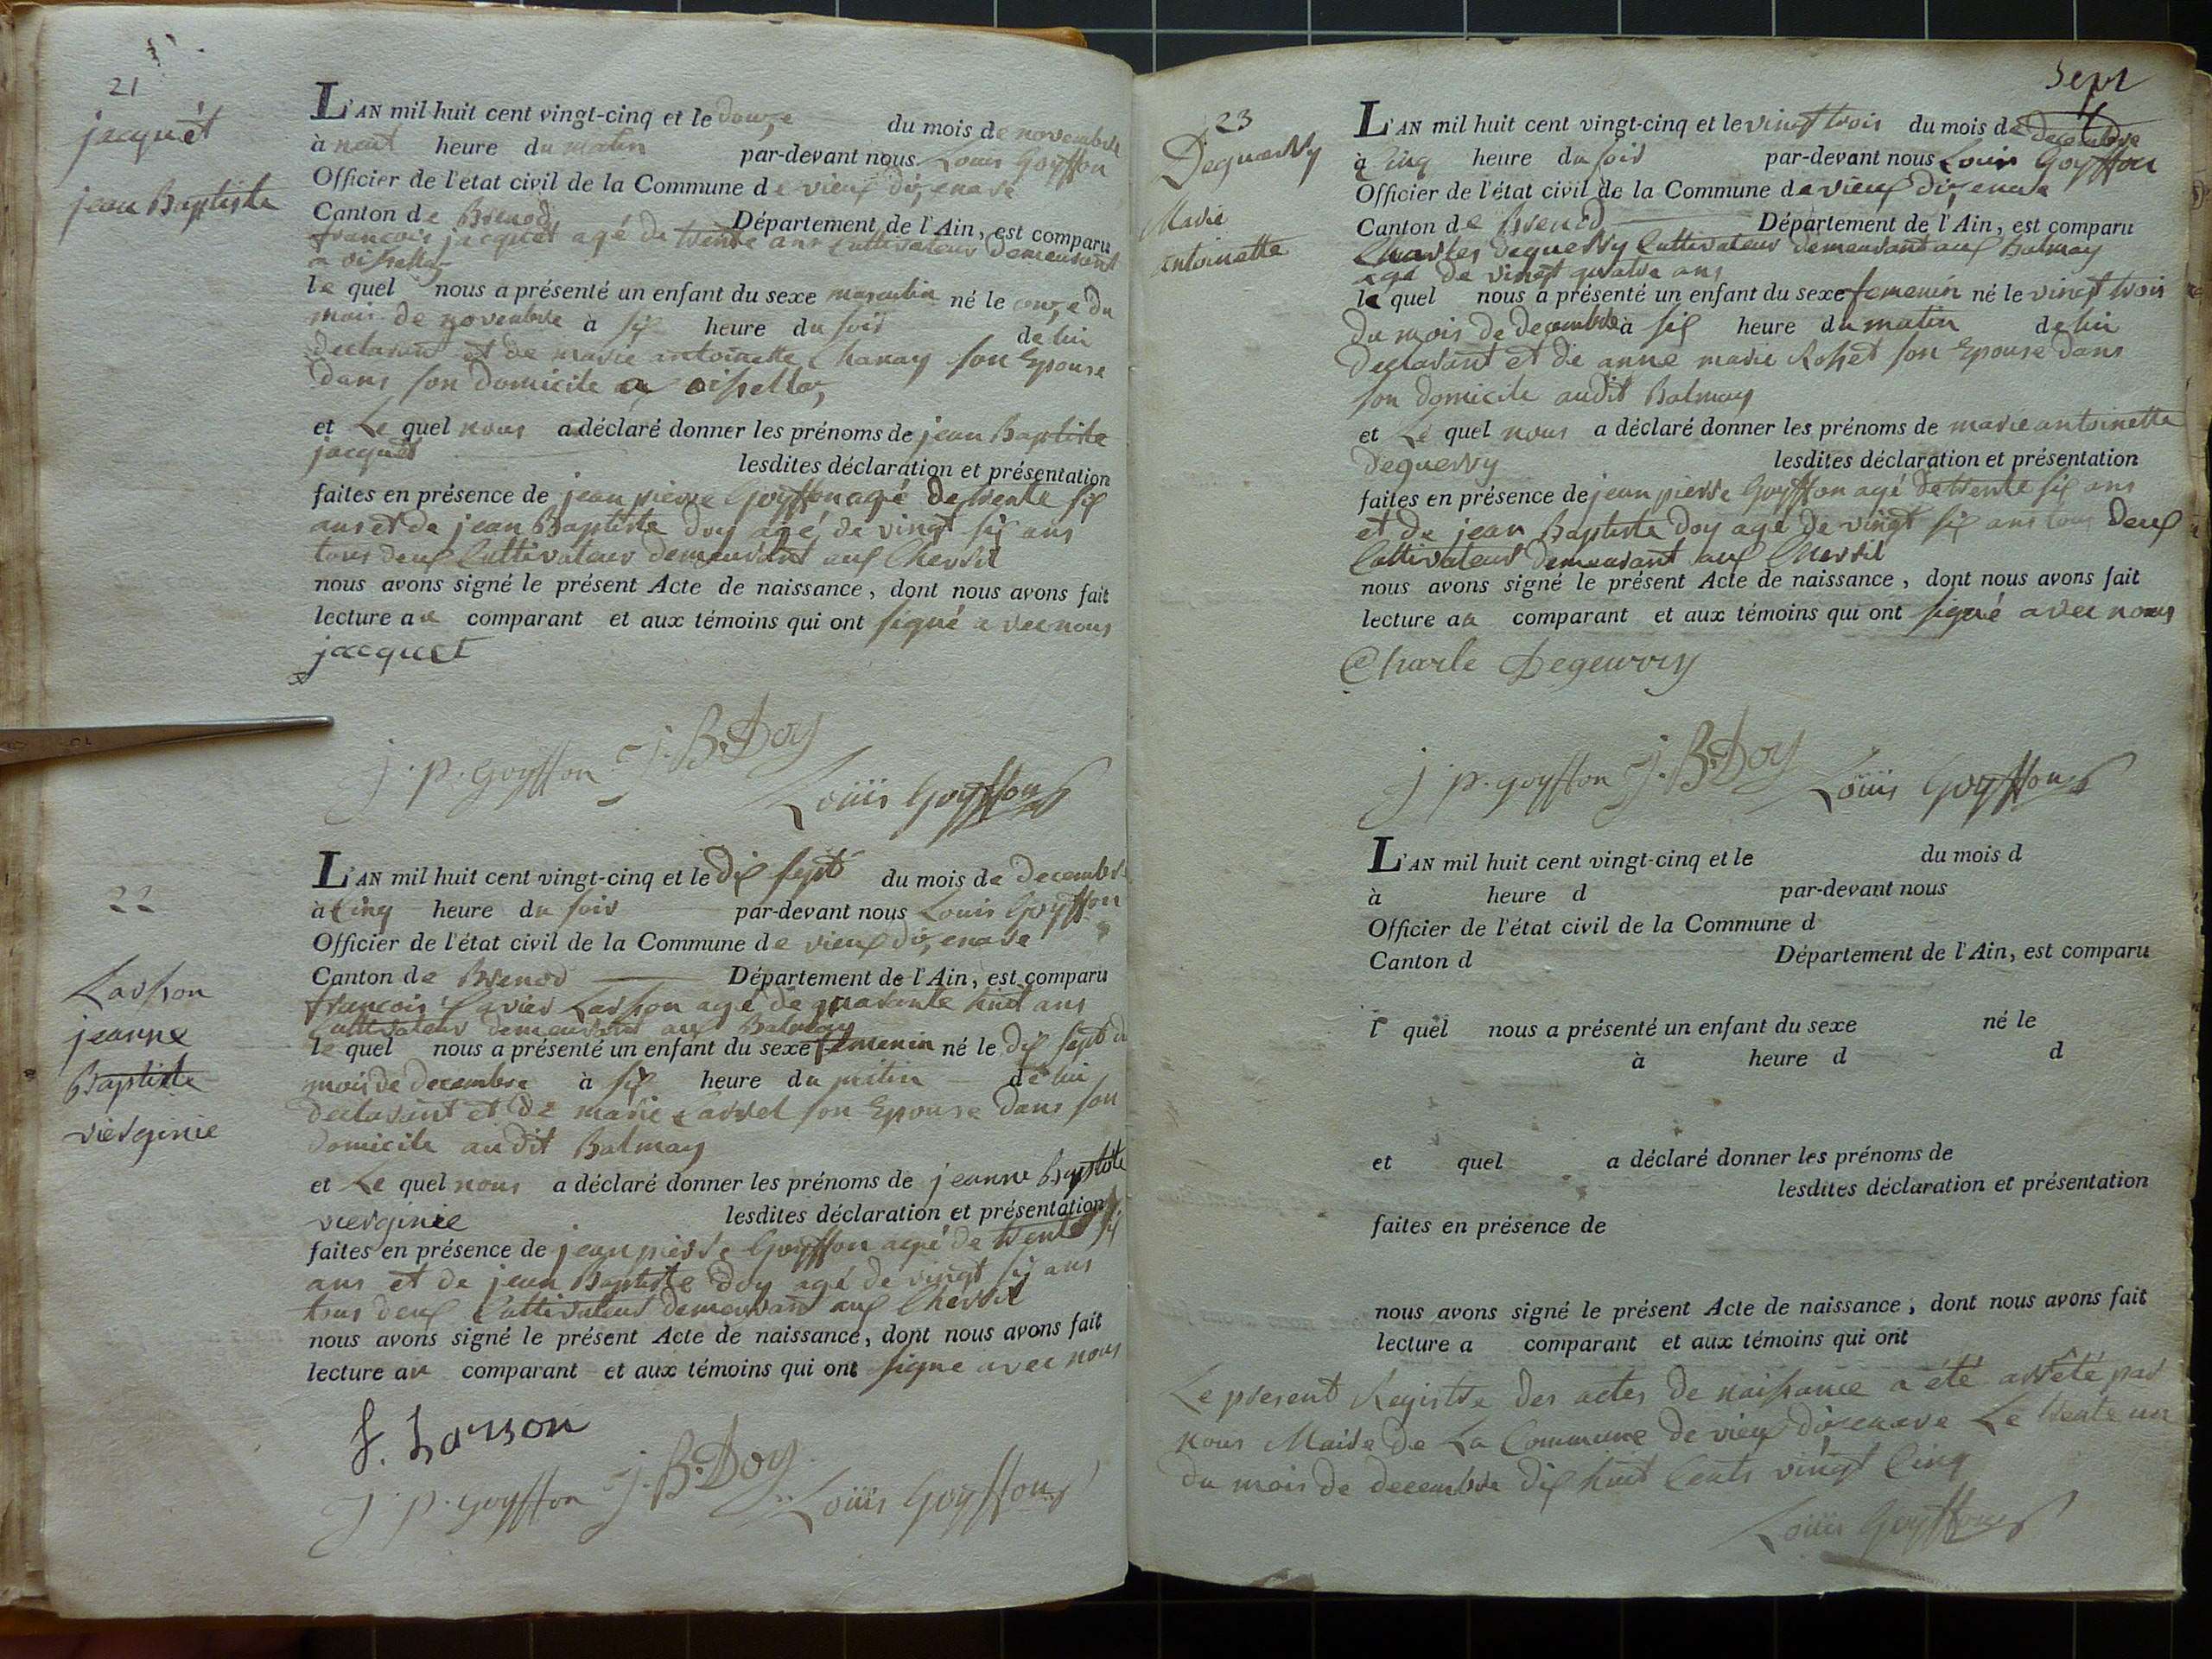 21
jacquet
jean Baptiste
L'AN mil huit cent vingt-cinq et le douze du mois de novembre
à neuf heure du matin par-devant nous Louis Goyffon
Officier de l'état civil de la Commune de vieux dizenave
Canton de Brenod Département de l'Ain, est comparu
francois jacquet agé de trente ans Cultivateur demeurant
a oissellaz
le quel nous a présenté un enfant du sexe masculin né le onze du
mois de novembre à six heure du soir de lui
declarant et de marie antoinette Chanay son Epouse
dans son domicile a oissellaz
et Le quel nous a déclaré donner les prénoms de jean Baptiste
jacquet lesdites déclaration et présentation
faites en présence de jean pierre Goyffon agé de trente six
ans et de jean Baptiste Doy agé de vingt six ans
tous deux Cultivateur demeurant aux Chevril
nous avons signé le présent Acte de naissance, dont nous avons fait
lecture au comparant et aux témoins qui ont signé avec nous
jacquet
j. p. goyffon j. B. Doy
Louis Goyffon
22
Larson
jeanne
Baptiste
vierginie
L'AN mil huit cent vingt-cinq et le dix sept du mois de decembre
à Cinq heure du soir par-devant nous Louis Goyffon
Officier de l'état civil de la Commune de vieux dizenave
Canton de Brenod Département de l'Ain, est comparu
francois Larson agé de quarante huit ans
Cultivateur demeurant aux Balmay
le quel nous a présenté un enfant du sexe femenin né le dix sept du
mois de decembre à six heure du matin de lui
declarant et de marie son Epouse dans son
domicile audit Balmay
et Le quel nous a déclaré donner les prénoms de jeanne Baptiste
vierginie lesdites déclaration et présentation
faites en présence de jean pierre Goyffon agé de trente six
ans et de jean Baptiste Doy agé de vingt six ans
tous deux Cultivateur demeurant aux Chevril
nous avons signé le présent Acte de naissance, dont nous avons fait
lecture au comparant et aux témoins qui ont signe avec nous
f. Larson
j. p. goyffon j. B. Doy Louis Goyffon
Sept
23
Deguerry
Marie
antoinette
L'AN mil huit cent vingt-cinq et le vingt trois du mois de decembre
à Cinq heure du soir par-devant nous Louis Goyffon
Officier de l'état civil de la Commune de vieux dizenave
Canton de Brenod Département de l'Ain, est comparu
Charles deguerry Cultivateur demeurant aux Balmay
agé de vingt quatre ans
le quel nous a présenté un enfant du sexe femenin né le vingt trois
du mois de decembre à six heure du matin de lui
declarant et de anne marie Rosset son Epouse dans
son domicile audit Balmay
et Le quel nous a déclaré donner les prénoms de marie antoinette
deguerry lesdites déclaration et présentation
faites en présence de jean pierre Goyffon agé de trente six ans
et de jean Baptiste Doy agé de vingt six ans tous deux
Cultivateur demeurant aux Chevril
nous avons signé le présent Acte de naissance, dont nous avons fait
lecture au comparant et aux témoins qui ont signé avec nous
Charle Degerory
j. p. goyffon j. B. Doy Louis Goyffon
L'AN mil huit cent vingt-cinq et le du mois d
à heure d par-devant nous
Officier de l'état civil de la Commune d
Canton d Département de l'Ain, est comparu
l quel nous a présenté un enfant du sexe né le
à heure d d
et quel a déclaré donner les prénoms de
lesdites déclaration et présentation
faites en présence de
nous avons signé le présent Acte de naissance, dont nous avons fait
lecture a comparant et aux témoins qui ont
Le present Registre des actes de naissance a été arrêté par
nous Maire de La Commune de vieux dizenave Le trente un
du mois de decembre dix huit Cents vingt Cinq
Louis Goyffon